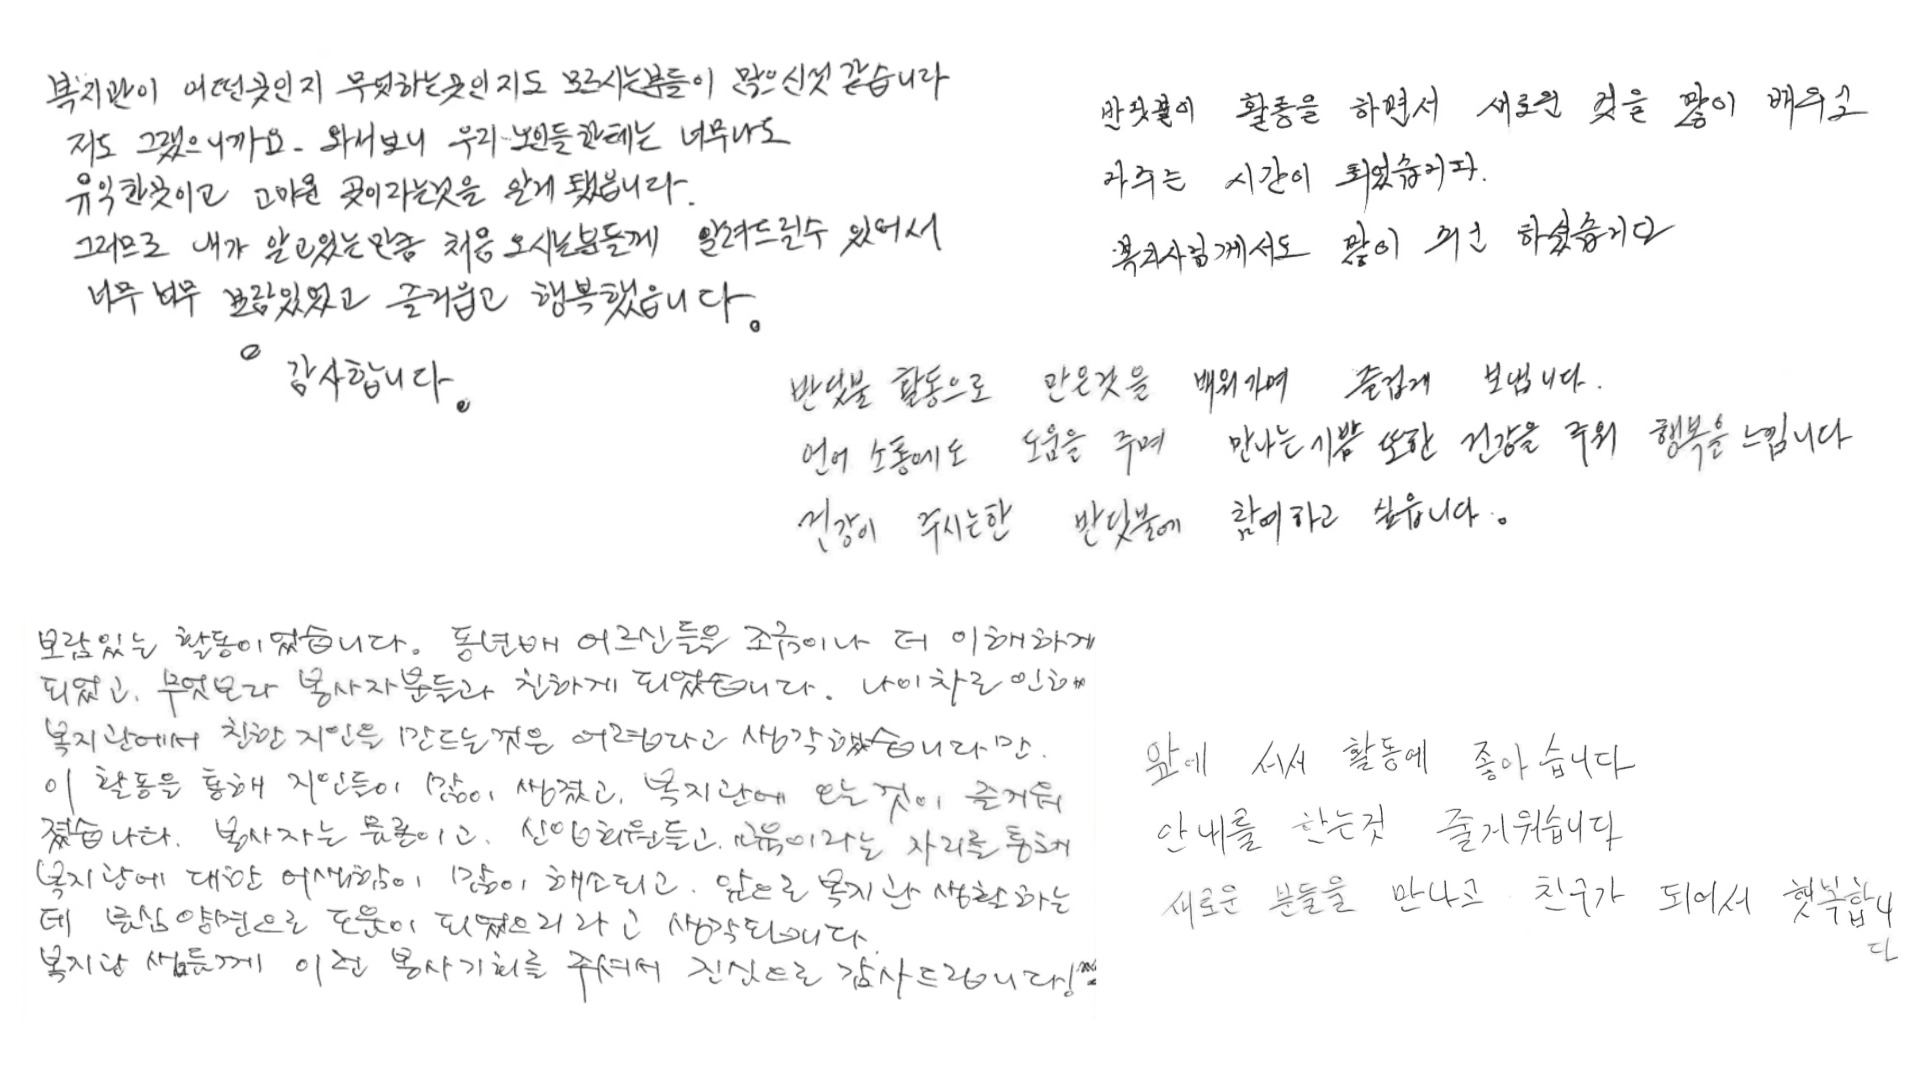 복지관이 어떤곳인지 무엇하는곳인지도 모르시는분들이 많으신것 같습니다
저도 그랬으니까요. 와서보니 우리 노인들한테는 너무나도
유익한곳이고 고마운 곳이라는것을 알게 됐습니다.
그러므로 내가 알고있는만큼 처음 오시는분들께 알려드릴수 있어서
너무 너무 보람있었고 즐거웁고 행복했습니다.
감사합니다.
반딧불이 활동을 하면서 새로운 것을 많이 배우고
나주는 시간이 되었습니다.
복지사님께서도 많이 하셨습니다
반딧불 활동으로 만은것을 배워가며 즐겁게 보냅니다.
언어 소통에도 도움을 주며 만나는 기쁨 또한 건강을 주워 행복을 느낍니다
건강이 주시는한 반딧불에 참여하고 싶습니다.
보람있는 활동이었습니다. 동년배 어르신들을 조금이나 더 이해하게
되었고, 무엇보다 봉사자분들과 친하게 되었습니다. 나이차로 인해
복지관에서 친한 지인을 만드는것은 어렵다고 생각했습니다만.
이 활동을 통해 지인들이 많이 생겼고, 복지관에 오는 것이 즐거워
졌습니다. 봉사자는 물론이고, 신입회원들고, 교육이라는 자리를 통해
복지관에 대한 어색함이 많이 해소되고, 앞으로 복지관 생활하는
데 물심양면으로 도움이 되었으리라고 생각됩니다.
복지관 쌤들께 이런 봉사기회를 주셔서 진심으로 감사드립니다!
앞에 서서 활동에 좋아습니다
안내를 한는것 줄거워습니다
새로운 분들을 만나고 친구가 되어서 행복합니
다